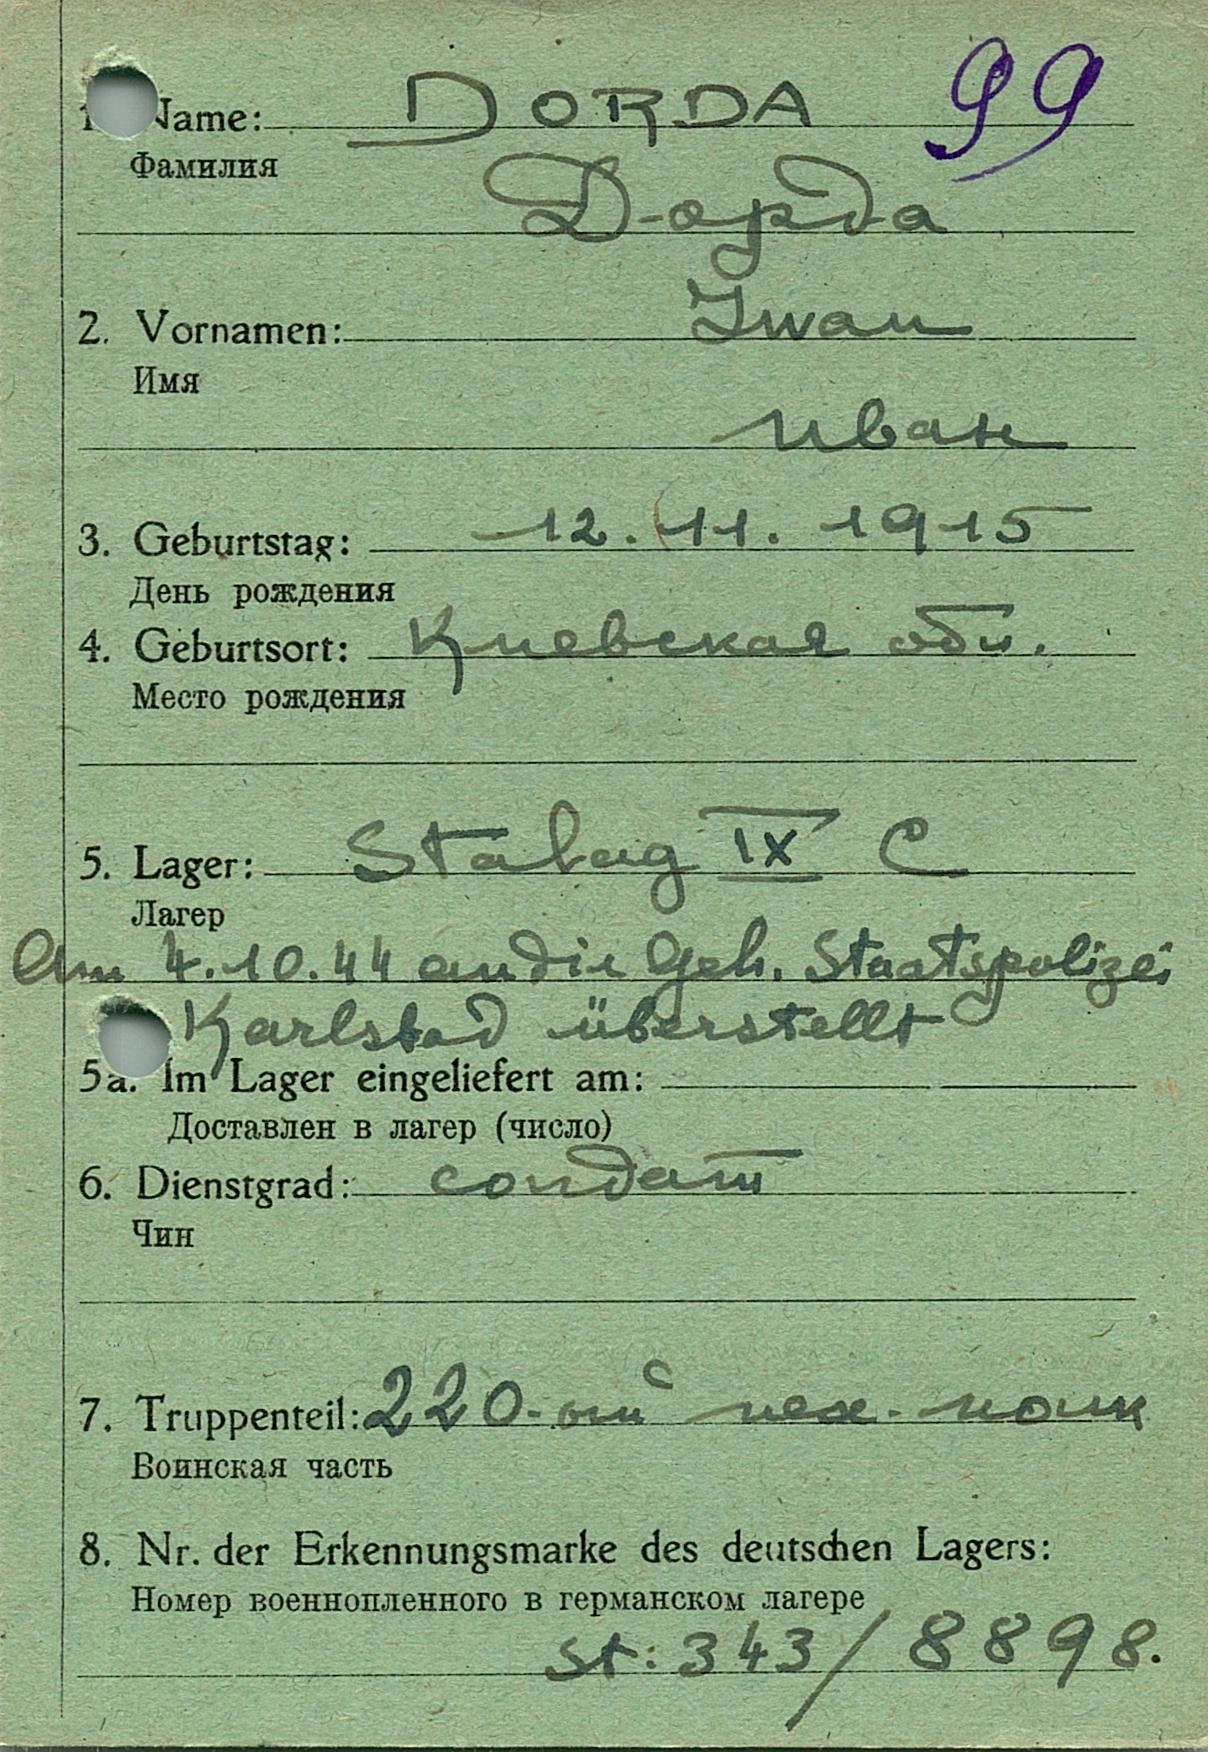 1. Name: DORDA 99
Фамилия
Дорда
2. Vornamen: Iwan
Имя
Иван
3. Geburtstag: 12.11.1915
День рождения
4. Geburtsort: Киевская обл.
Место рождения
5. Lager: Stalag IX C
Лагер
Am 4.10.44 an die Geh. Staatspolizei
Karlsbad überstellt
5a. Im Lager eingeliefert am:
Доставлен в лагер (число)
6. Dienstgrad: солдат
Чин
7. Truppenteil: 220-ый с пех. полк
Воинская часть
8. Nr. der Erkennungsmarke des deutschen Lagers:
Номер военнопленного в германском лагере
St: 343/8898.